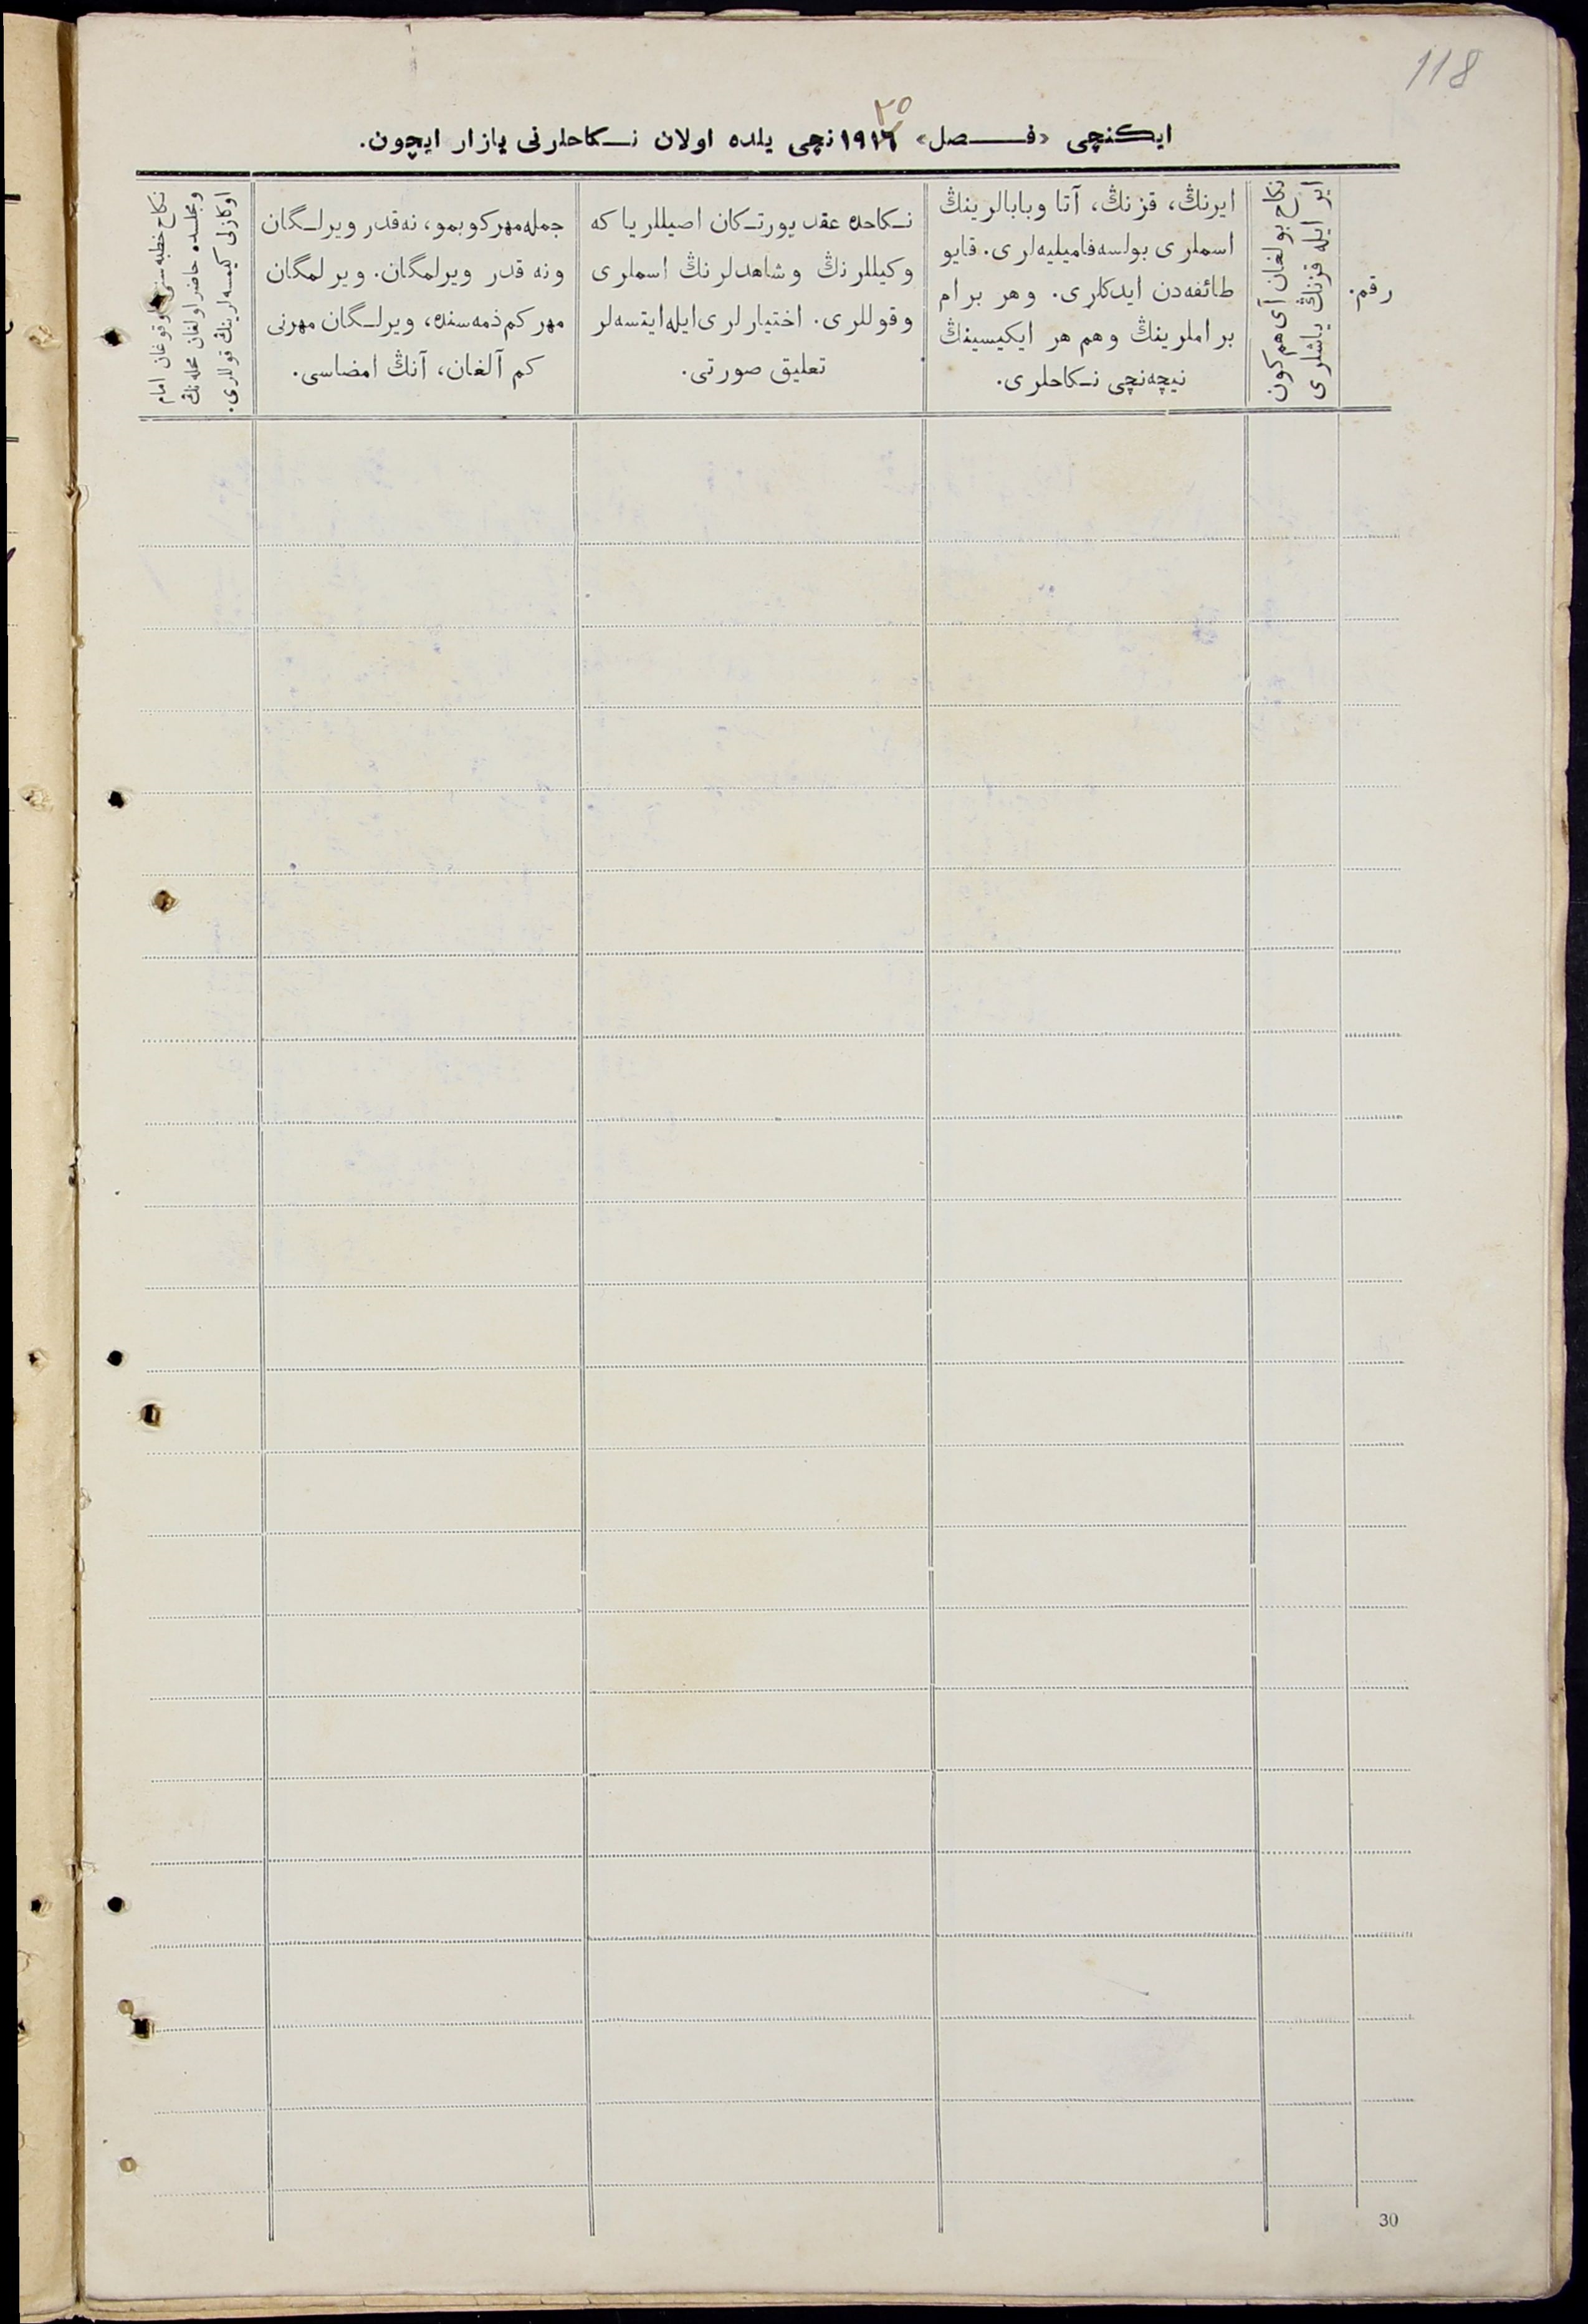 118
٢٥
ایکنچی «فـــصل» ١٩١٦ نچی یلده اولان نـکاحلرنی یازار ایچون.
رقم.
نکاح بولغان آی هم کون
ایر ایله قزنڭ یاشلری
ایرنڭ، قزنڭ، آتا وبابالرینڭ
اسملری بولسه فامیلیه‌لری. قایو
طائفه‌دن ایدکلری. وهر برام
براملرینڭ وهم هر ایکیسینڭ
نیچه‌نچی نـکاحلری.
نـکاحده عقد یورتـکان اصیللر یا که
وکیللرنڭ وشاهدلرنڭ اسملری
وقوللری. اختیارلری ایله ایتسه‌لر
تعلیق صورتی.
جمله مهر کوبمو، نه‌قدر ویرلـگان
ونه قدر ویرلمگان. ویرلمگان
مهر کم ذمه‌سنده، ویرلـگان مهرنی
کم آلغان، آنڭ امضاسی.
نکاح خطبه‌سنی اوقوغان امام
ومجلسده حاضر اولغان محله‌نڭ
اوکازنی کیمسه‌لرینڭ قوللری.
30